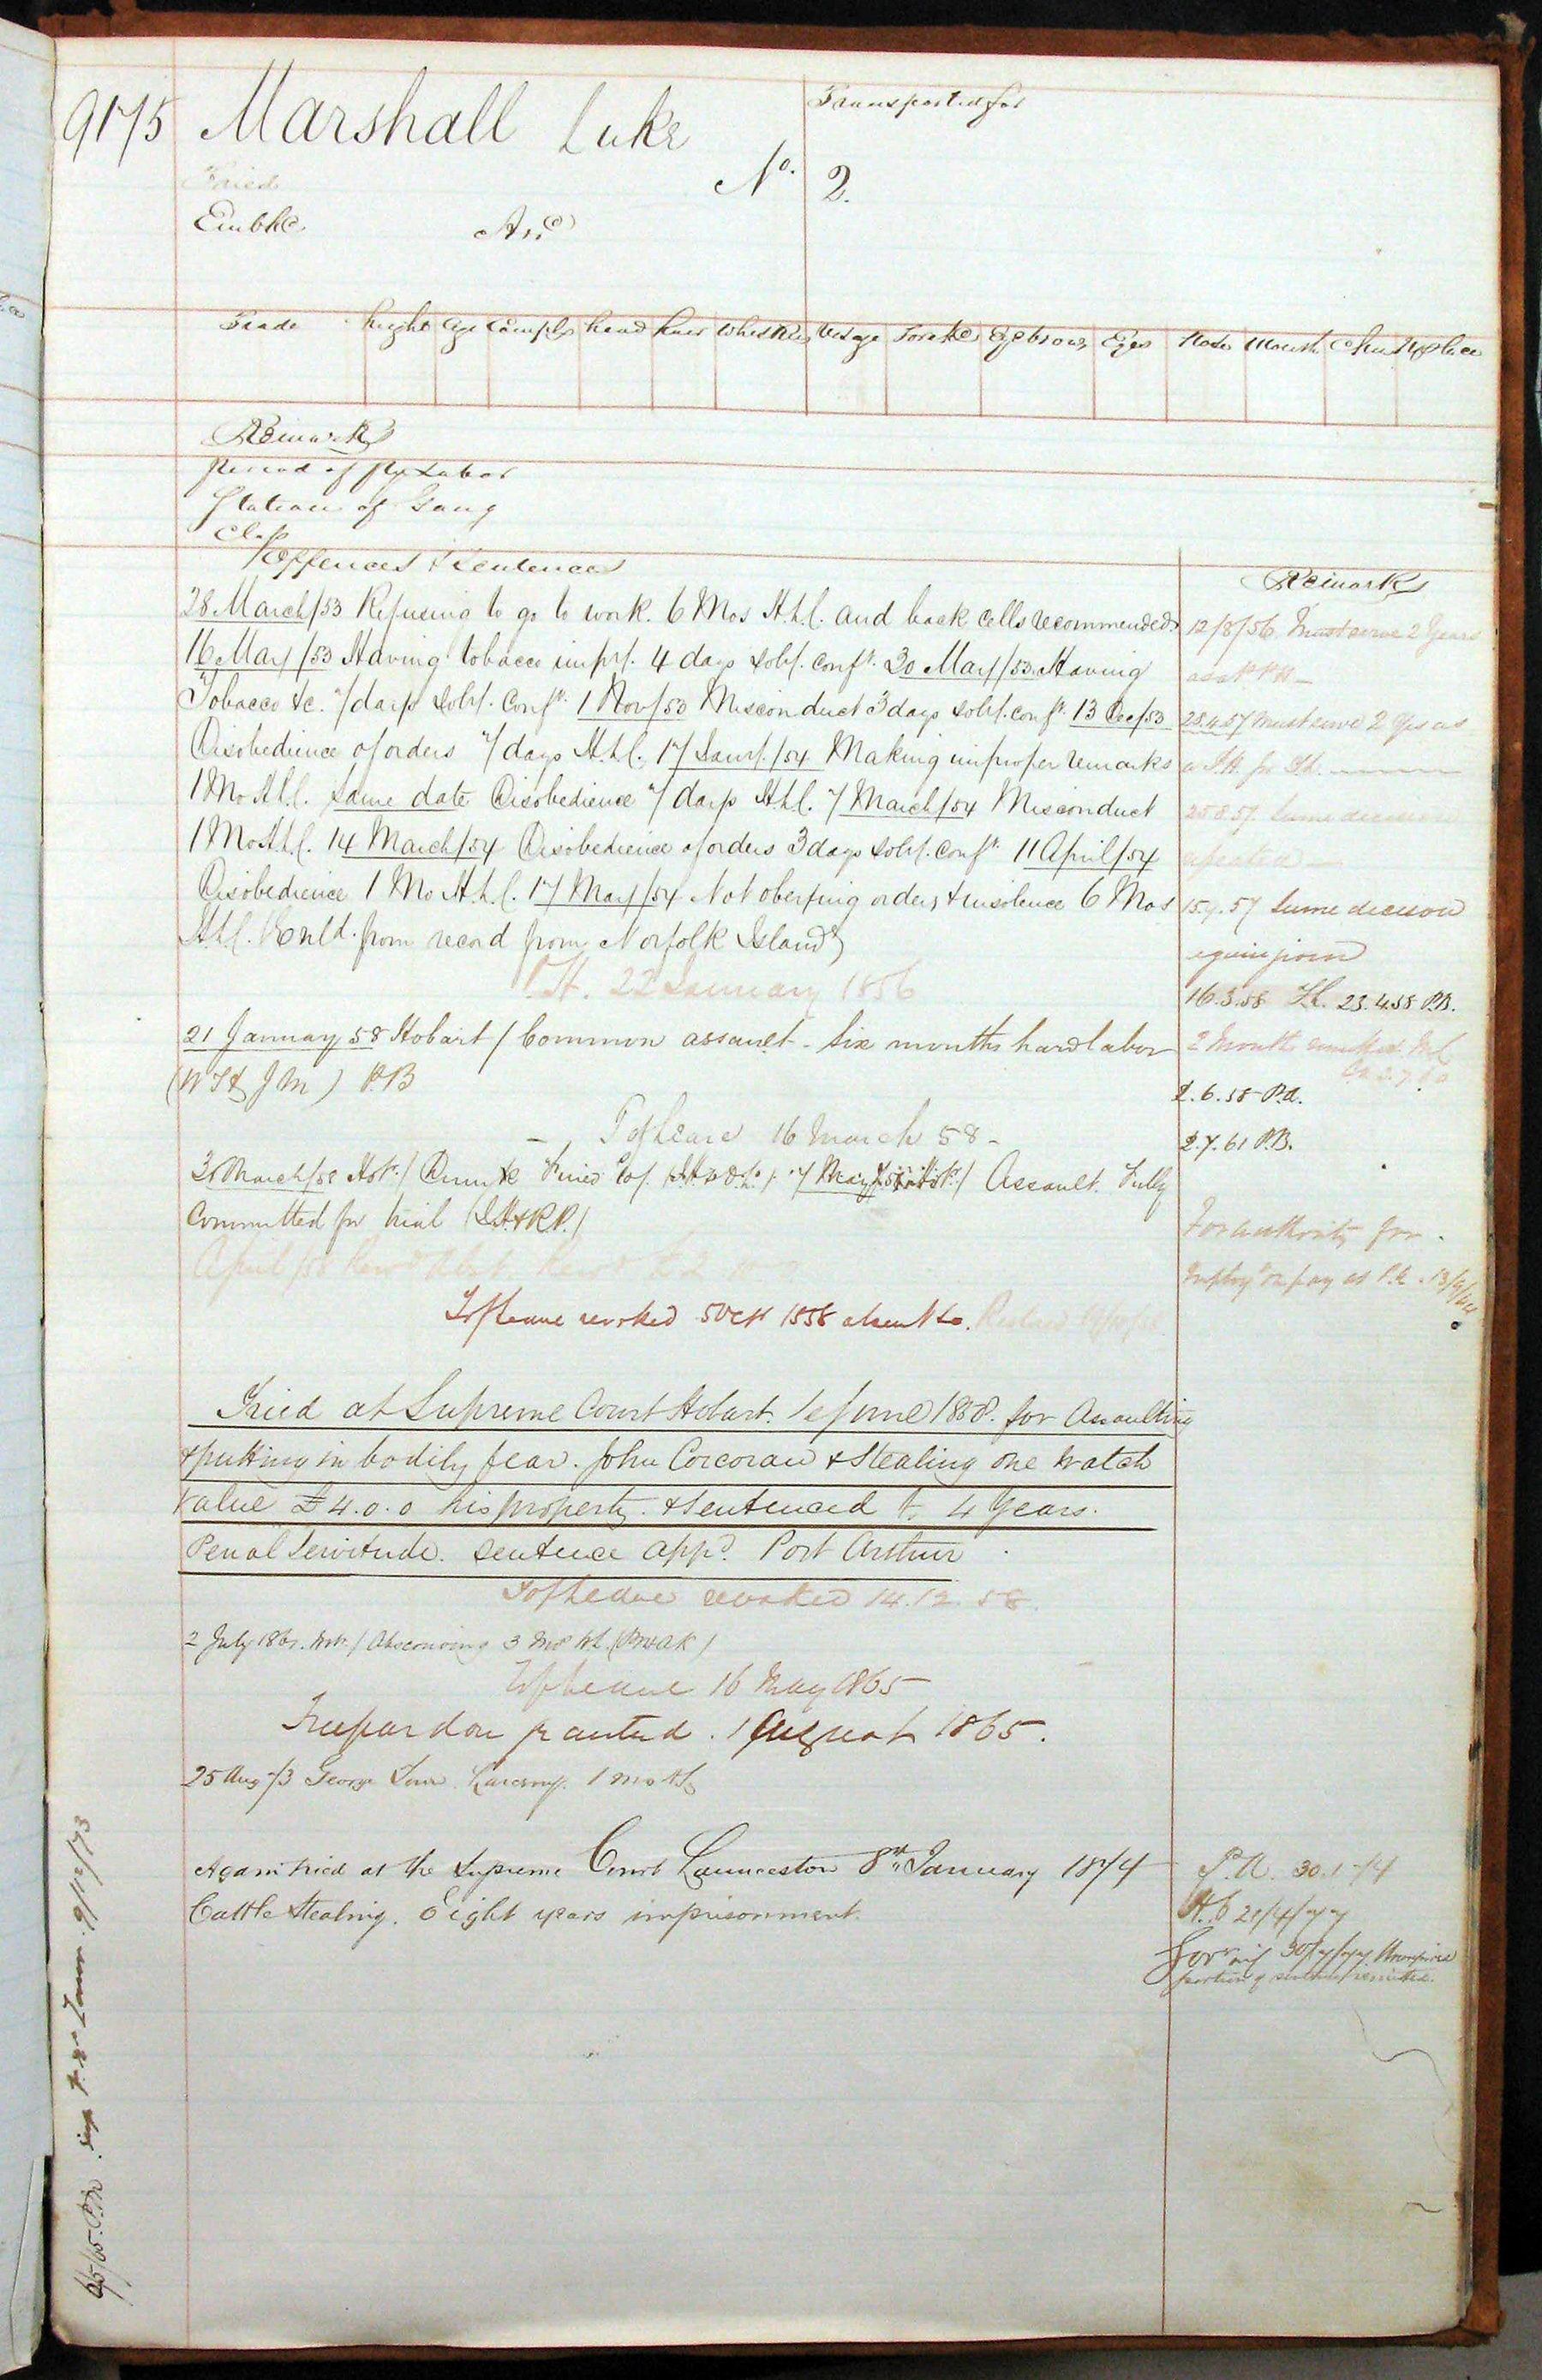 9175 Marshall Luke
Transported for
No. 2.
Tried
Embkd Arrd
Trade height age Complx head hair Whiskers Visage Forehd Eyebrows Eyes Nose Mouth Chin N. place
Remarks
Period of Labor
Station of Gang
Class
Offences & Sentences
Remarks
28 March/53 Refusing to go to work. 6 Mos H.L. and back cells recommended
16 May/53 Having tobacco imprl. 4 days solt. conft. 30 May/53 Having
Tobacco &c. 7 days solt. Conft. 1 Nov/53 Misconduct 3 days solt. conft. 13 Dec/53
Disobedience of orders 7 days H.L. 17 Jany./54 Making improper remarks
1 Mo H.L. same date Disobedience 7 days H.L. 7 March/54 Misconduct
1 Mo H.L. 14 March/54 Disobedience of orders 3 days solt. conft. 11 April/54
Disobedience 1 Mo H.L. 17 May/54 Not obeying orders & insolence 6 Mos
H.L. from record from Norfolk Island
P.H. 22 January 1856
21 January 58 Hobart / Common assault - Six months hard labor
P.B
T of Leave 16 March 58 -
March/58 Hobt./ Drunk Fined Assault. Fully
Committed for trial
April/58
T of Leave revoked 5 Oct 1858 absent
Tried at Supreme Court Hobart. 1 June 1858. for Assaulting
& putting in bodily fear. John Corcoran & Stealing one Watch
value £4.0.0 his property. & Sentenced to 4 Years.
Penal Servitude. sentence appd. Port Arthur
T of Leave revoked 14.12.58.
2 July 1861. / Absconding 3 Mos
T of Leave 16 May 1865
Free pardon granted. 1 August 1865.
25 Aug 73 George Town. Larceny. 1 mo
Again tried at the Supreme Court Launceston 8th January 1874
Cattle Stealing. Eight years imprisonment.
12/8/56 Must serve 2 Years
as a P.P.H -
28.4.57 Must serve 2 yrs as
a P.H. for T.L.
25.8.57 Same decision
repeated -
15.9.57 Same decision
again given
16.3.58 T.L. 23.4.58 P.B.
2 Months
2.6.58 P.A.
2.7.61 P.B.
For authority for
employt on pay at P.A.
P.A. 30.1.74
H.C 21/4/77
30/7/77 Unexpired
portion of sentence remitted.
9/12/73